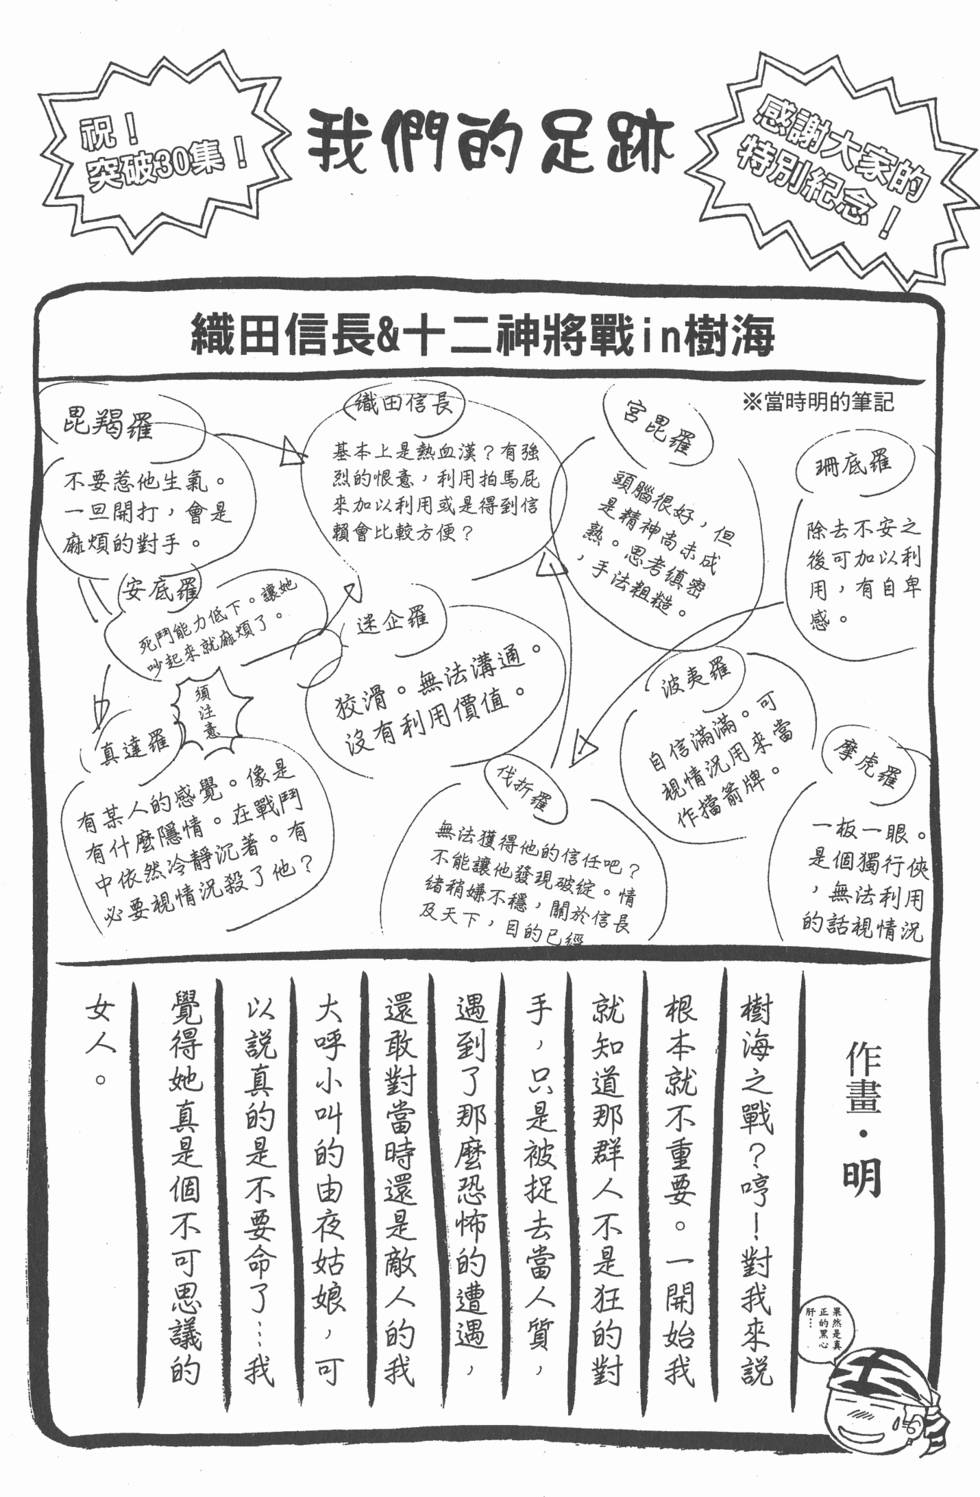 祝！
突破30集！
我們的足跡
感謝大家的
特別紀念！
織田信長&十二神將戰in樹海
※當時明的筆記
昆羯羅
不要惹他生氣。
一旦開打，會是
麻煩的對手。
織田信長
基本上是熱血漢？有強
烈的恨意，利用拍馬屁
來加以利用或是得到信
賴會比較方便？
宮毘羅
頭腦很好，但
是精神尚未成
熟。思考縝密
，手法粗糙。
珊底羅
除去不安之
後可加以利
用，有自卑
感。
安底羅
死鬥能力低下。讓她
吵起來就麻煩了。
迷企羅
狡滑。無法溝通。
沒有利用價值。
須注意
真達羅
有某人的感覺。像是
有什麼隱情。在戰鬥
中依然冷靜沉著。有
必要視情況殺了他？
波夷羅
自信滿滿。可
視情況用來當
作擋箭牌。
伐折羅
無法獲得他的信任吧？
不能讓他發現破綻。情
緒稍嫌不穩，關於信長
及天下，目的已經
摩虎羅
一板一眼。
是個獨行俠
，無法利用
的話視情況
作畫・明
樹海之戰？哼！對我來說
根本就不重要。一開始我
就知道那群人不是狂的對
手，只是被捉去當人質，
遇到了那麼恐怖的遭遇，
還敢對當時還是敵人的我
大呼小叫的由夜姑娘，可
以說真的是不要命了…我
覺得她真是個不可思議的
女人。
果然是真
正的黑心
肝…